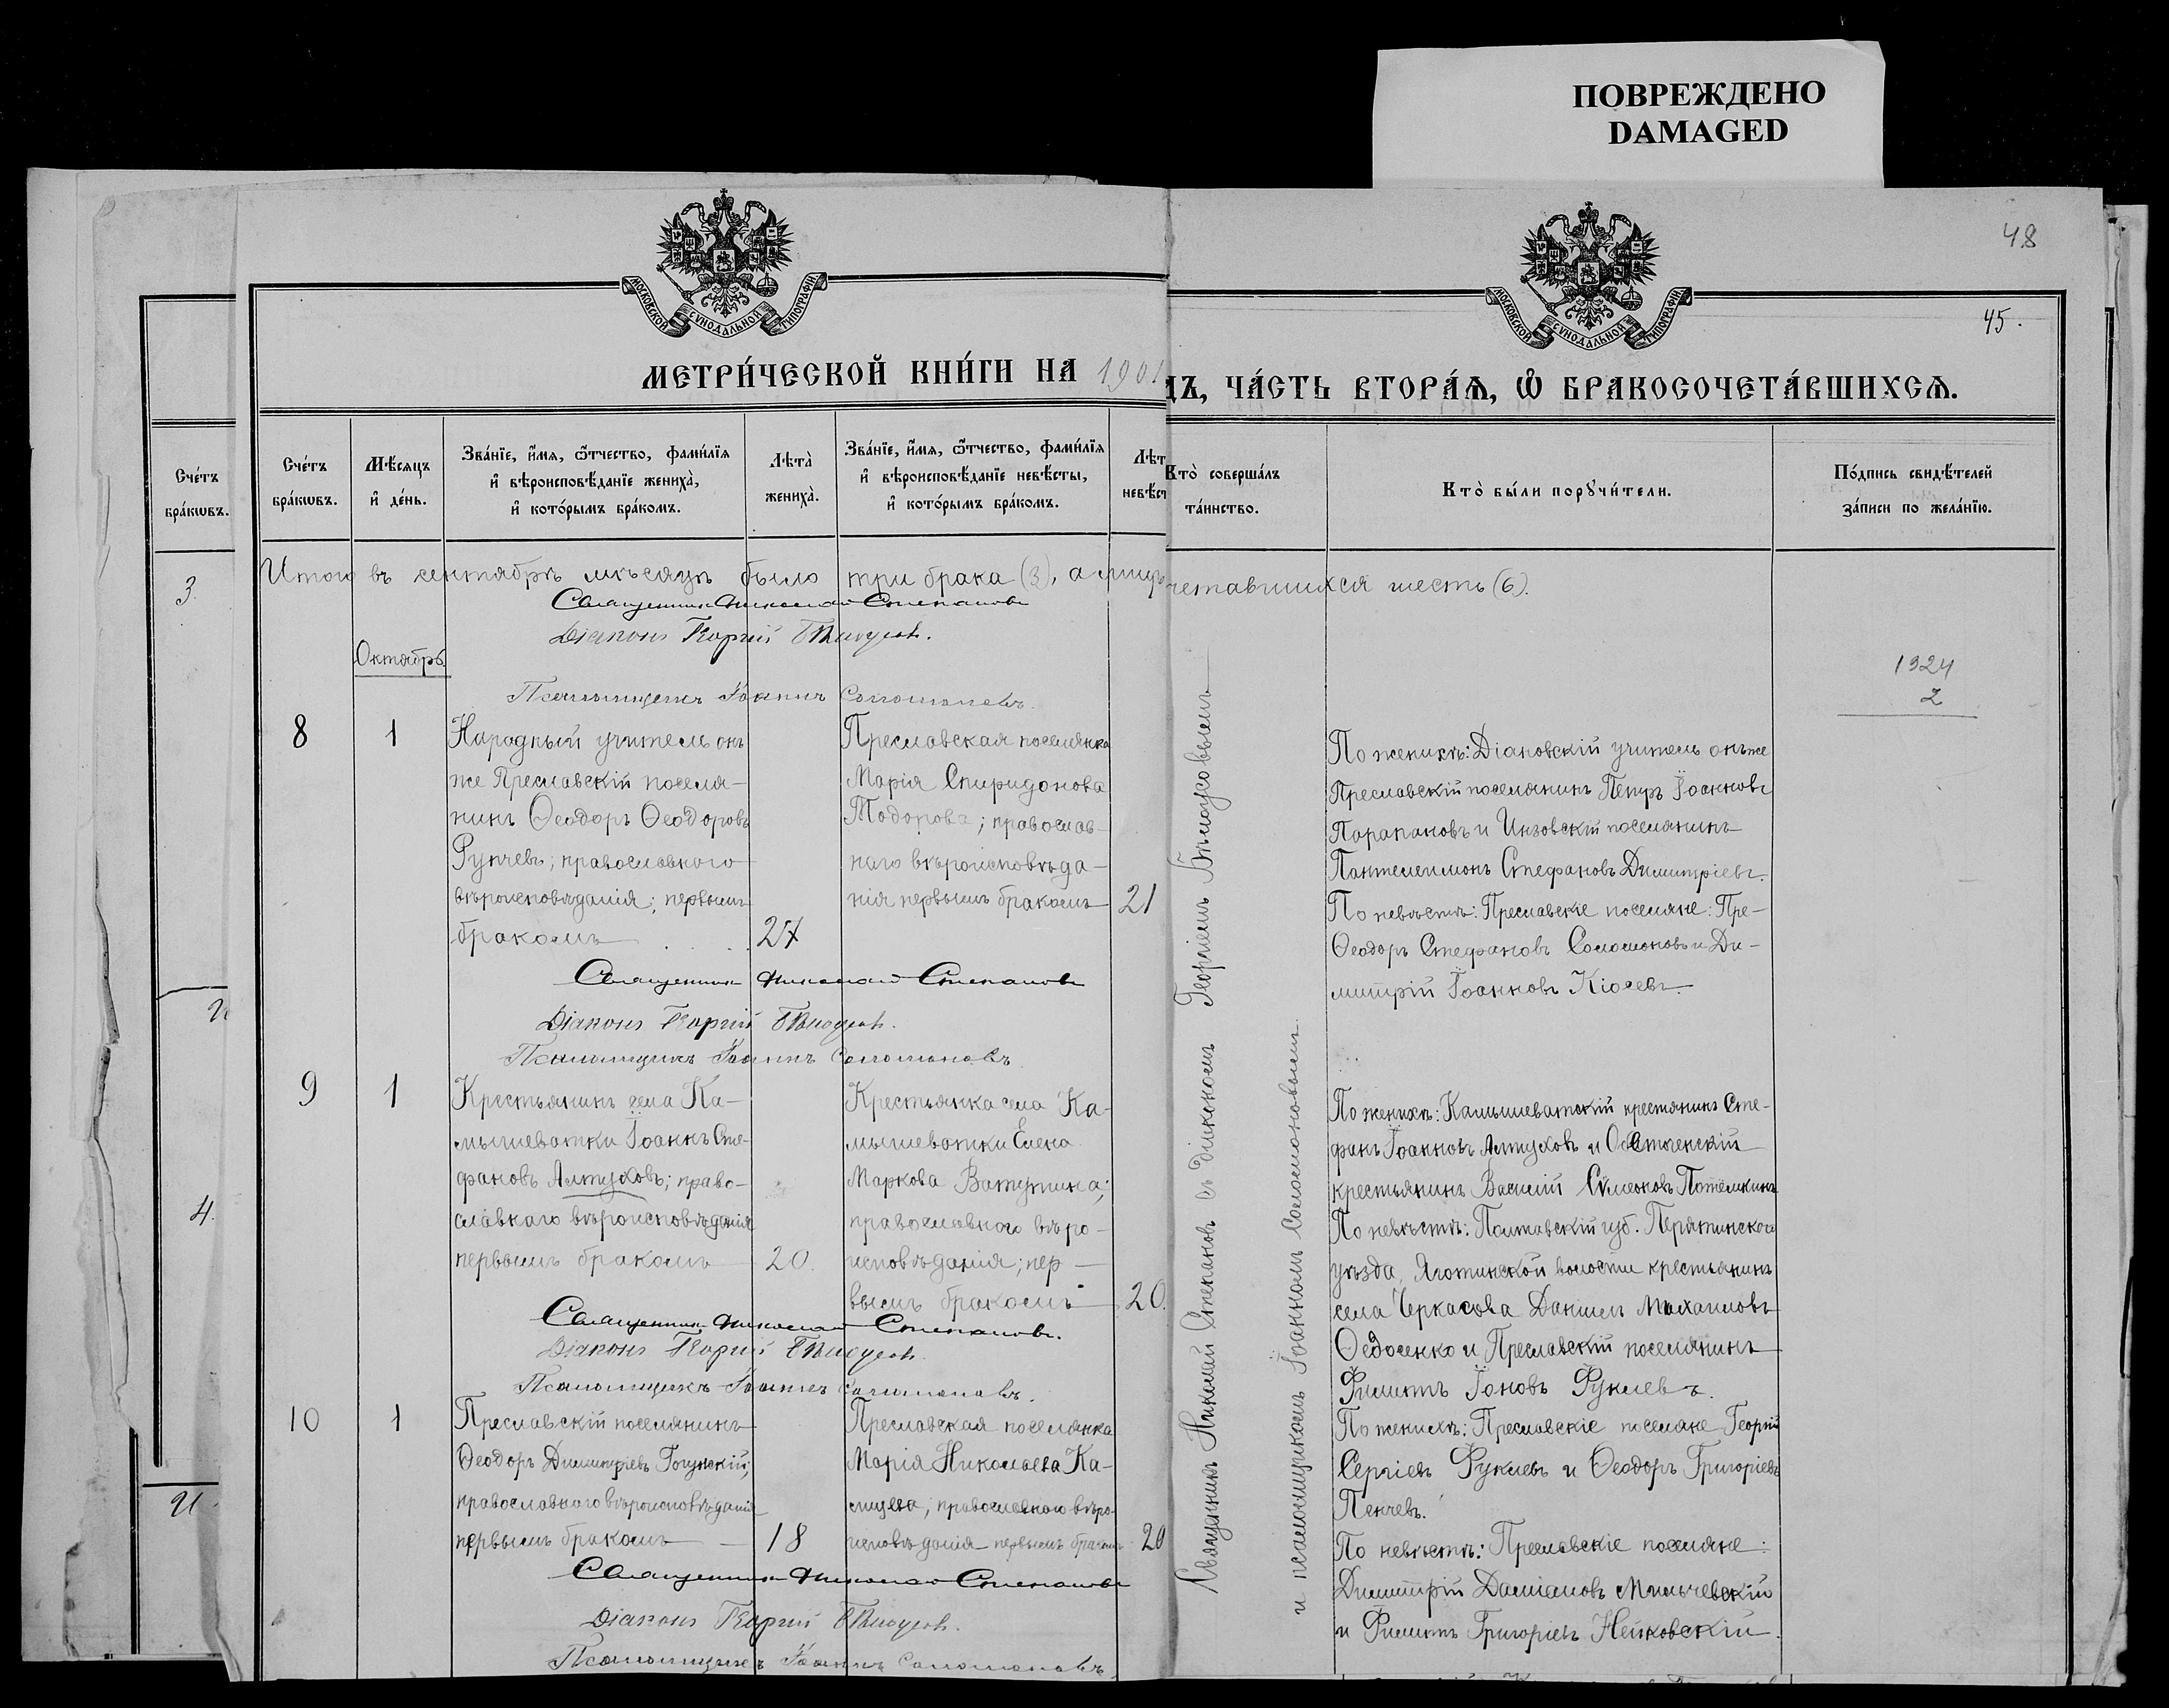 ПОВРЕЖДЕНО
DAMAGED
48
45.
МОСКОВСКОЙ СУНОДАЛЬНОЙ ТИПОГРАФІИ
МОСКОВСКОЙ СУНОДАЛЬНОЙ ТИПОГРАФІИ
МЕТРИ́ЧЕСКОЙ КНИ́ГИ НА 1901
ДЪ, ЧА́СТЬ ВТОРА́Ѧ, Ѡ БРАКОСОЧЕТА́ВШИХСѦ.
Сче́тъ
бра́кѡвъ.
Сче́тъ
бра́кѡвъ.
Мѣ́сѧцъ
и҆ де́нь.
Зва́нїе, и҆́мѧ, ѻ҆́тчество, фами́лїѧ
и҆ вѣроисповѣ́данїе жениха̀,
и҆ кото́рымъ бра́комъ.
Лѣта̀
жениха̀.
Зва́нїе, и҆́мѧ, ѻ҆́тчество, фами́лїѧ
и҆ вѣроисповѣ́данїе невѣ́сты,
и҆ кото́рымъ бра́комъ.
Лѣт
невѣ́ст
Кто̀ соверша́лъ
та́инство.
Кто̀ бы́ли порꙋчи́тели.
По́дпись свидѣ́телей
за́писи по жела́нїю.
3.
4.
Итого въ сентябрѣ мѣсяцѣ было три брака (3), а лицъ
четавшихся шесть (6).
Священникъ Николай Степановъ
Діаконъ Георгій Бѣлоусовъ.
Октябрь
Псаломщикъ Іоаннъ Соломоновъ.
1924
2
8
1
Народный учитель онъ
же Преславскій поселя-
нинъ Ѳеодоръ Ѳеодоровъ
Рупчевъ; православного
вѣроисповѣданія; первымъ
бракомъ
27
Преславская поселянка
Марія Спиридонова
Тодорова; православ-
наго вѣроисповѣда-
нія первымъ бракомъ
21
По женихѣ: Діановскій учитель онъ же
Преславскій поселянинъ Петръ Іоанновъ
Парапановъ и Инзовскій поселянинъ
Пантелеимонъ Стефановъ Димитріевъ.
По невѣстѣ: Преславскіе поселяне: Пре-
Ѳеодоръ Стефановъ Соломоновъ и Ди-
митрій Іоанновъ Кіосевъ.
Священникъ Николай Степановъ
Діаконъ Георгій Бѣлоусовъ.
Псаломщикъ Іоаннъ Соломоновъ
Священникъ Николай Степановъ съ діакономъ Георгіемъ Бѣлоусовымъ
и псаломщикомъ Іоанномъ Соломоновымъ.
9
1
Крестьянинъ села Ка-
мышеватки Іоаннъ Сте-
фановъ Алтуховъ; право-
славнаго вѣроисповѣданія
первымъ бракомъ
20.
Крестьянка села Ка-
мышеватки Елена
Маркова Ватутина;
православного вѣро-
исповѣданія; пер-
вымъ бракомъ
20.
По женихѣ: Камышеватскій крестянинъ Сте-
фанъ Іоанновъ Алтуховъ и
крестьянинъ Василій Сѵмеоновъ Потёмкинъ
По невѣстѣ: Полтавскій губ. Перятинского
уѣзда, Яготинской волости крестьянинъ
села Черкасова Даніилъ Михаиловъ
Ѳедосенко и Преславскій поселянинъ
Филиппъ Іоновъ Фуклевъ.
Священникъ Николай Степановъ.
Діаконъ Георгій Бѣлоусовъ.
Псаломщикъ Іоаннъ Соломоновъ.
10
1
Преславскій поселянинъ
Ѳеодоръ Димитріевъ Гогунскій;
православного вѣроисповѣданія
первымъ бракомъ
18
Преславская поселянка
Марія Николаева Ка-
православного вѣро-
исповѣданія первымъ бракомъ
20
По женихѣ: Преславскіе поселяне Георгій
Сергіевъ Фуклевъ и Ѳеодоръ Григоріевъ
Пенчевъ.
По невѣстѣ: Преславскіе поселяне:
Димитрій Даміановъ Мильчевскій
и Филиппъ Григоріевъ Нейковскій.
Священникъ Николай Степановъ
Діаконъ Георгій Бѣлоусовъ.
Псаломщикъ Іоаннъ Соломоновъ.